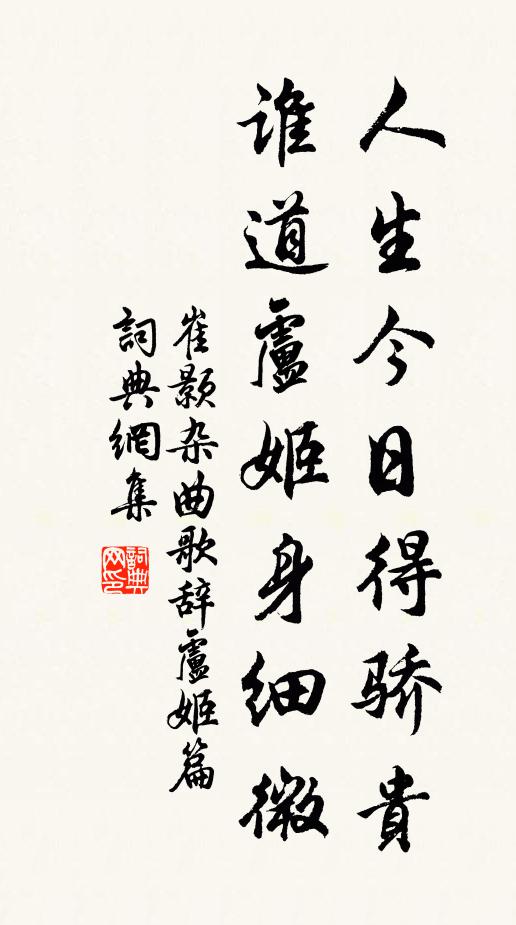 人生今日得骄貴
谁道盧姬身细微
崔颢杂曲歌辞盧姬篇
詞典網集
詞典網印